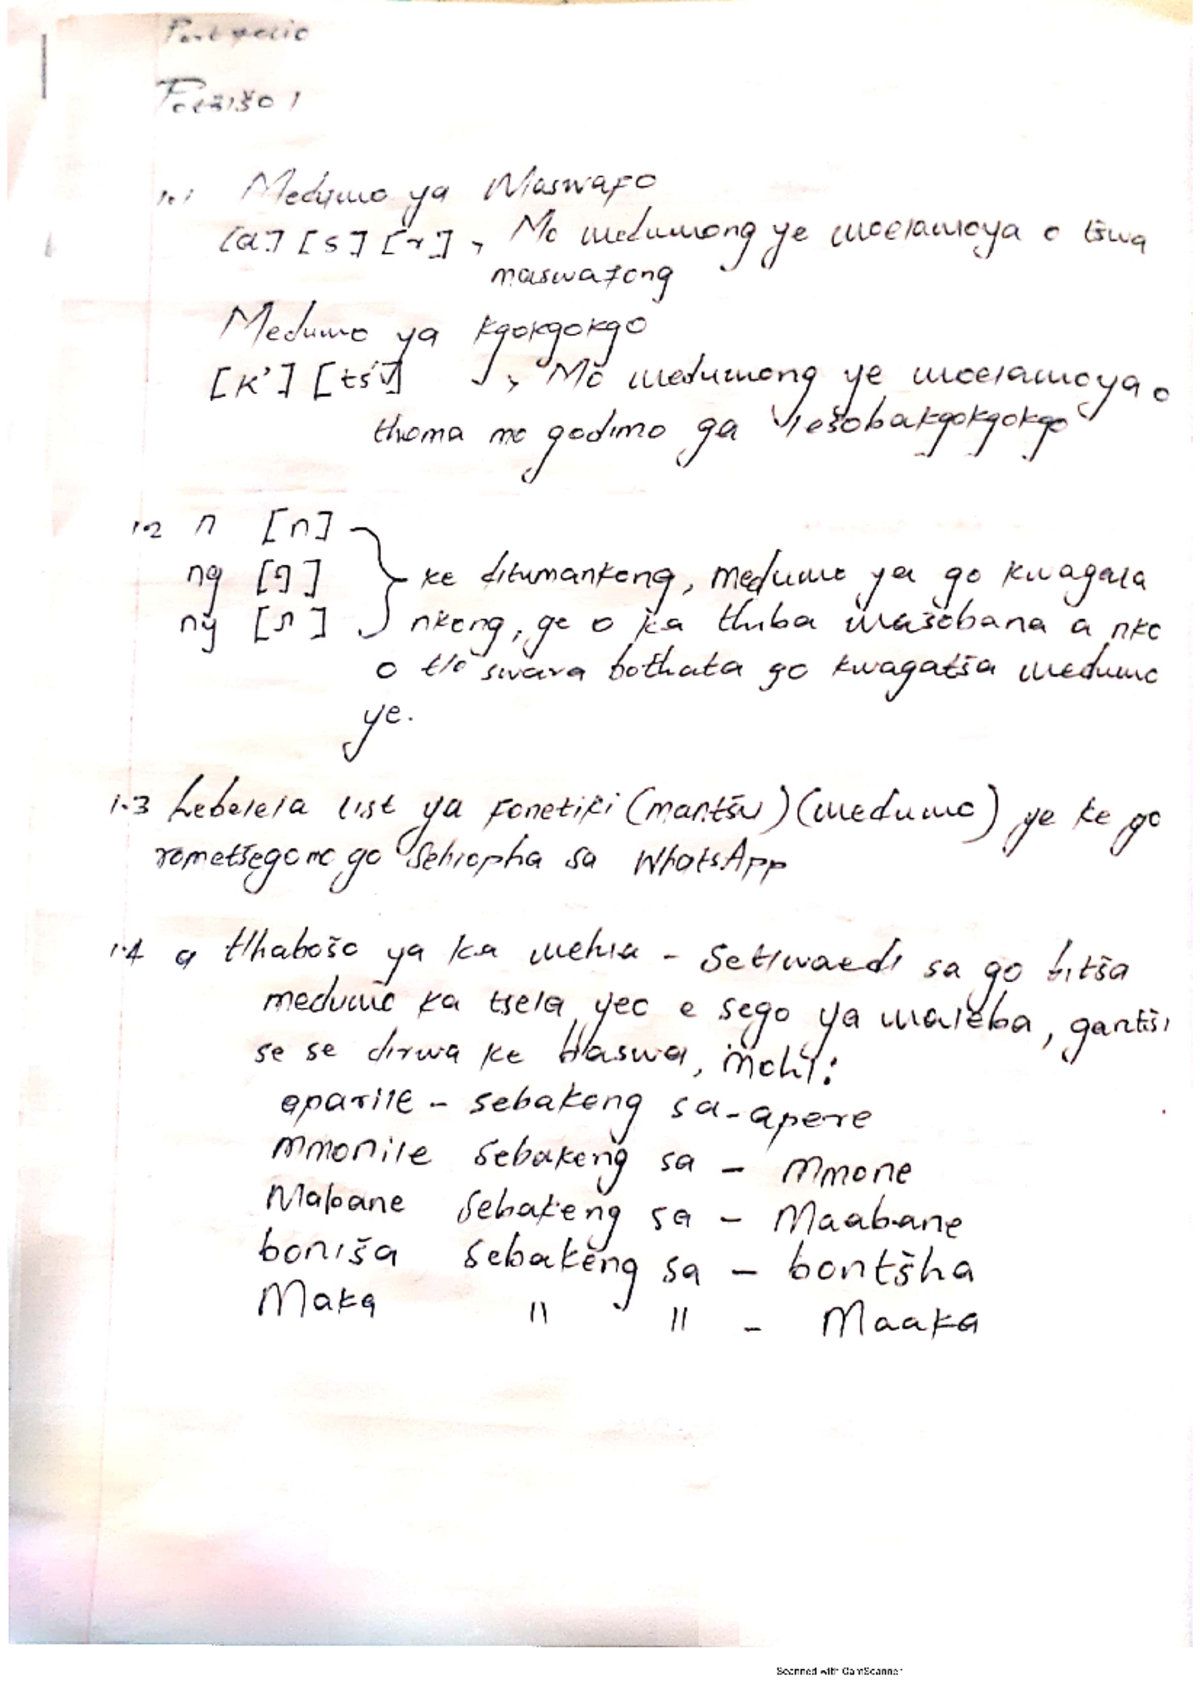 Portfolio
Potšišo 1
1.1 Medumo ya Maswafo
[a] [s] [r], Mo medumong ye moelamoya o tšwa
maswafong
Medumo ya kgokgokgo
[k'] [tš'] , Mo medumong ye moelamoya o
thoma mo godimo ga lešobakgokgokgo
1.2 n [n]
ng [ŋ] ke ditumankong, medumo ya go kwagala
ny [ɲ] nkong, ge o ka thiba mašobana a nko
o tlo swara bothata go kwagatša medumo
ye.
1.3 Lebelela list ya Fonetiki (mantšu) (medumo) ye ke go
rometšegono go Sehlopha sa WhatsApp
1.4 a tlhabošo ya ka mehla - Setlwaedi sa go bitša
medumo ka tsela yeo e sego ya maleba, gantši
se se dirwa ke Baswa, Mohl:
aparile - sebakeng sa - apere
Mmonile sebakeng sa - Mmone
Mabane sebakeng sa - Maabane
boniša sebakeng sa - bontšha
Maka " " - Maaka
Scanned with CamScanner